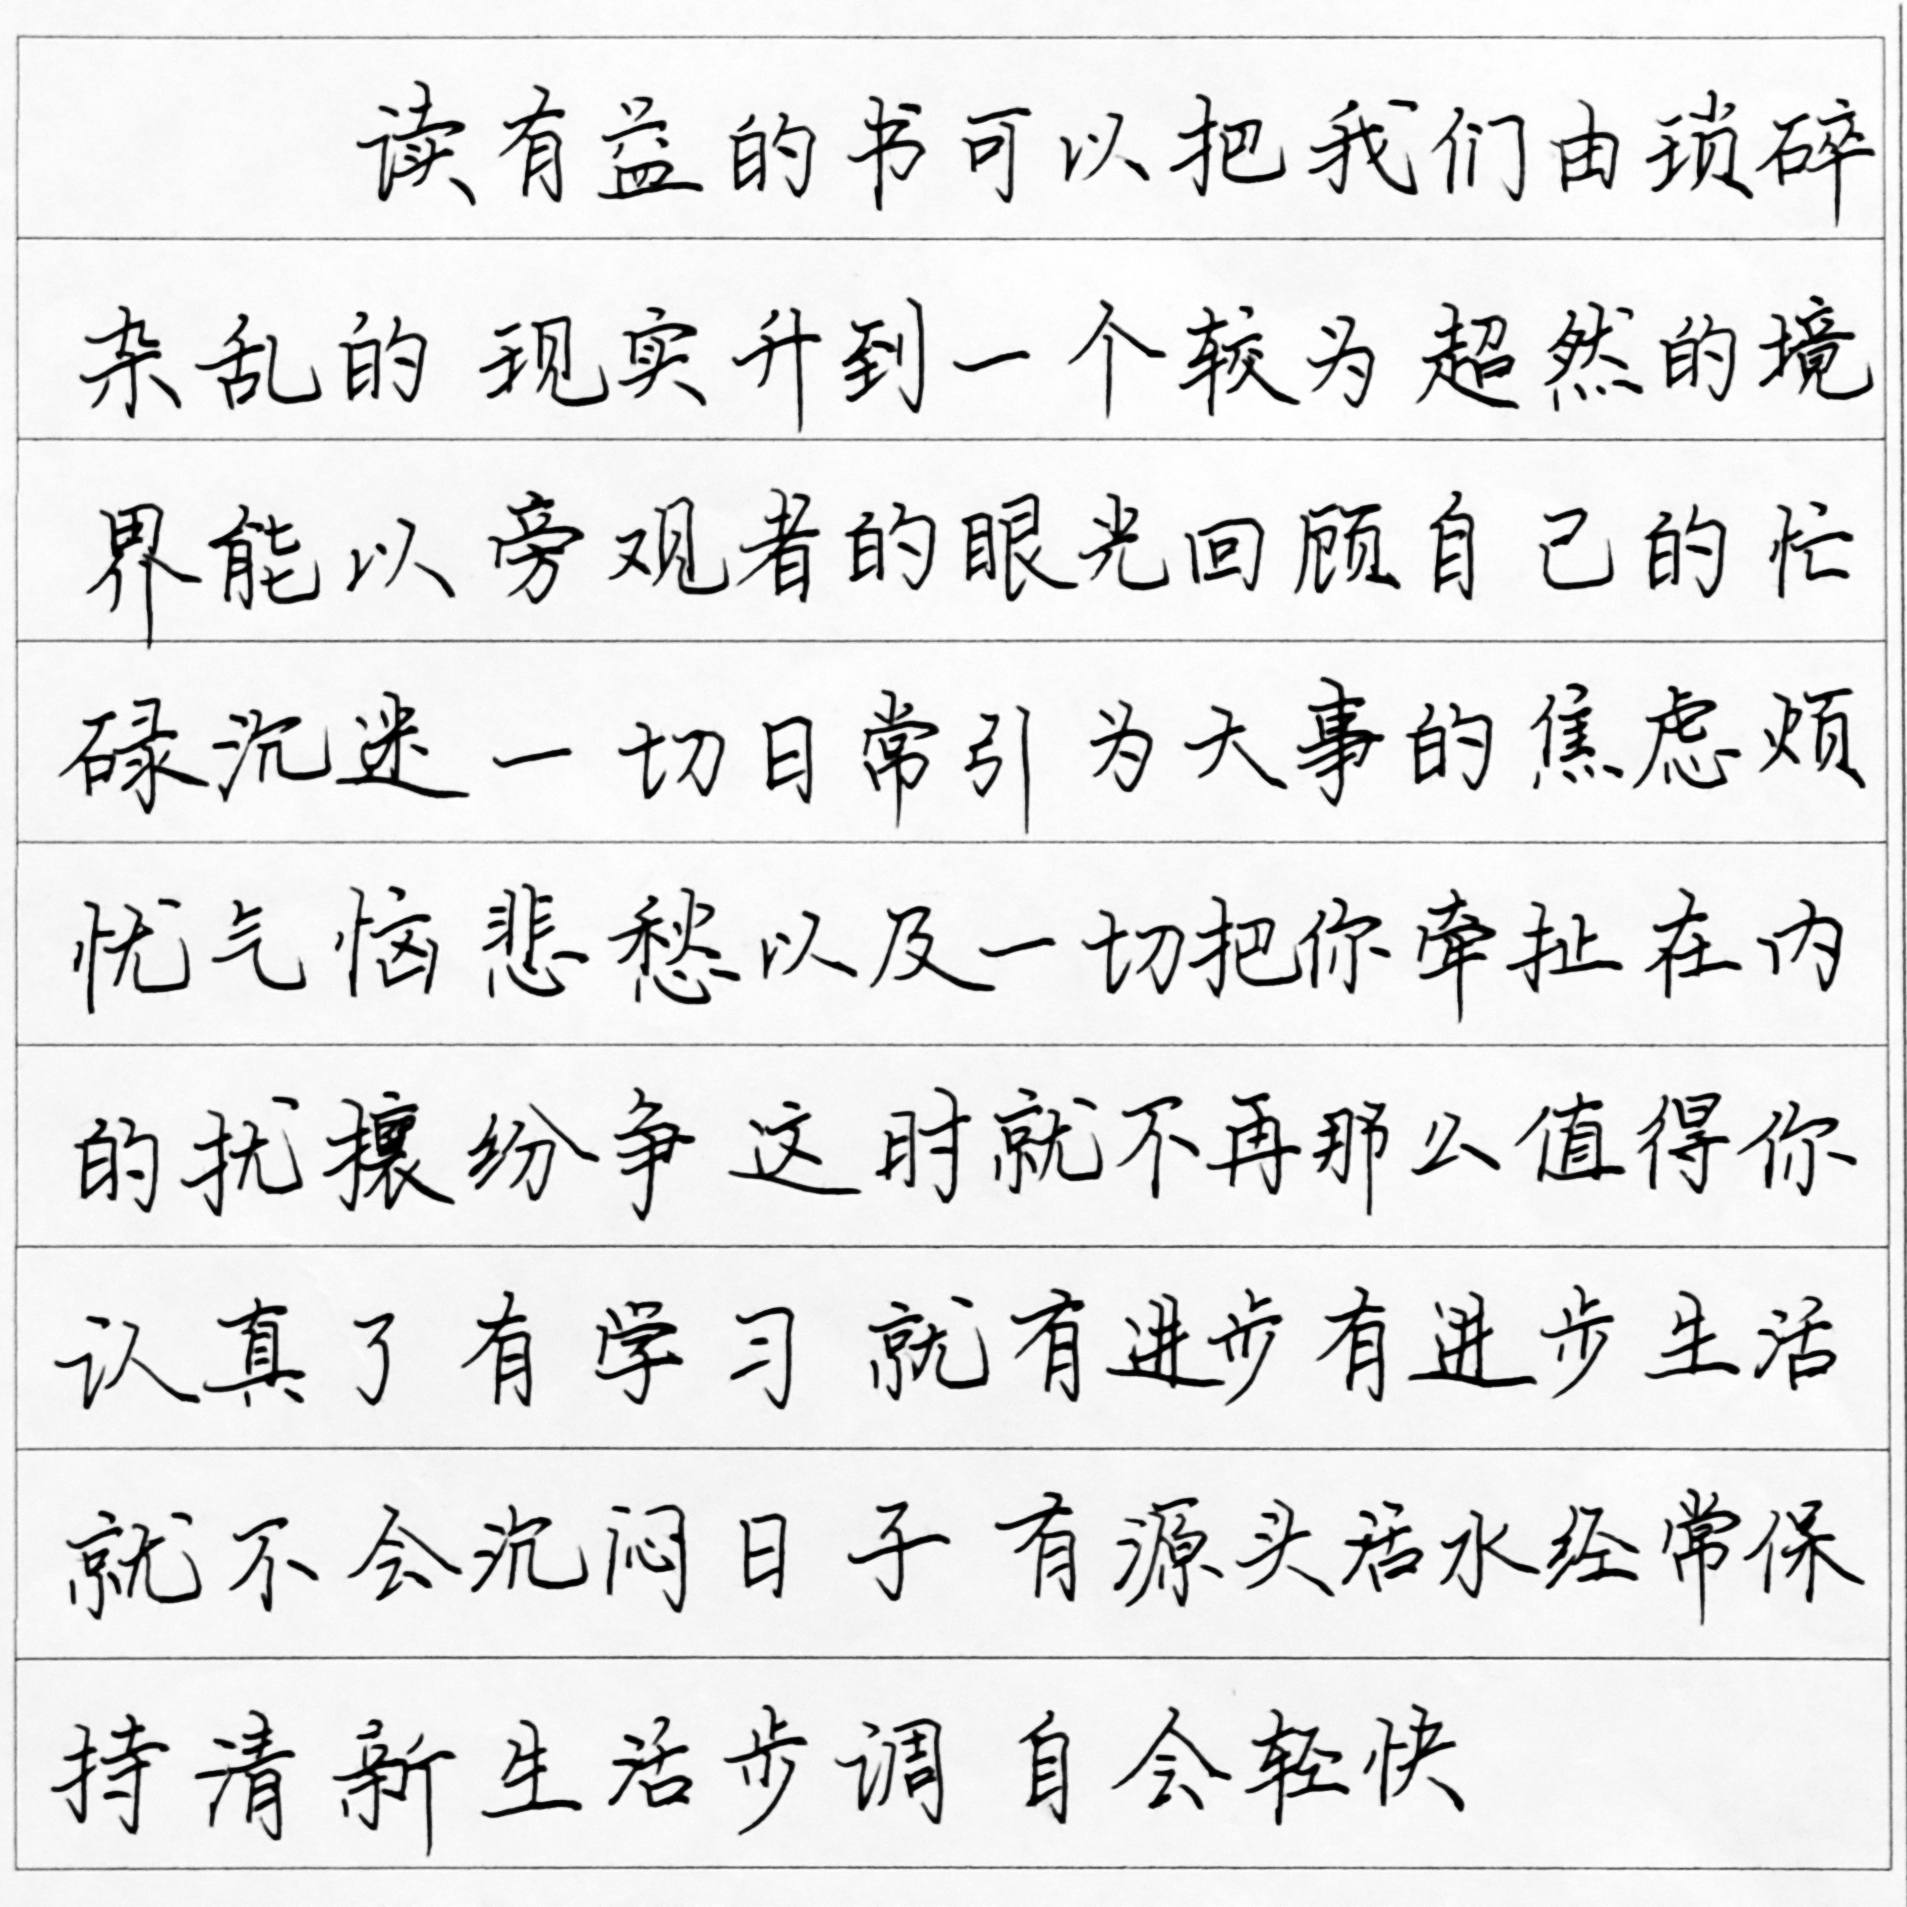 读有益的书可以把我们由琐碎
杂乱的现实升到一个较为超然的境
界能以旁观者的眼光回顾自己的忙
碌沉迷一切日常引为大事的焦虑烦
忧气恼悲愁以及一切把你牵扯在内
的扰攘纷争这时就不再那么值得你
认真了有学习就有进步有进步生活
就不会沉闷日子有源头活水经常保
持清新生活步调自会轻快